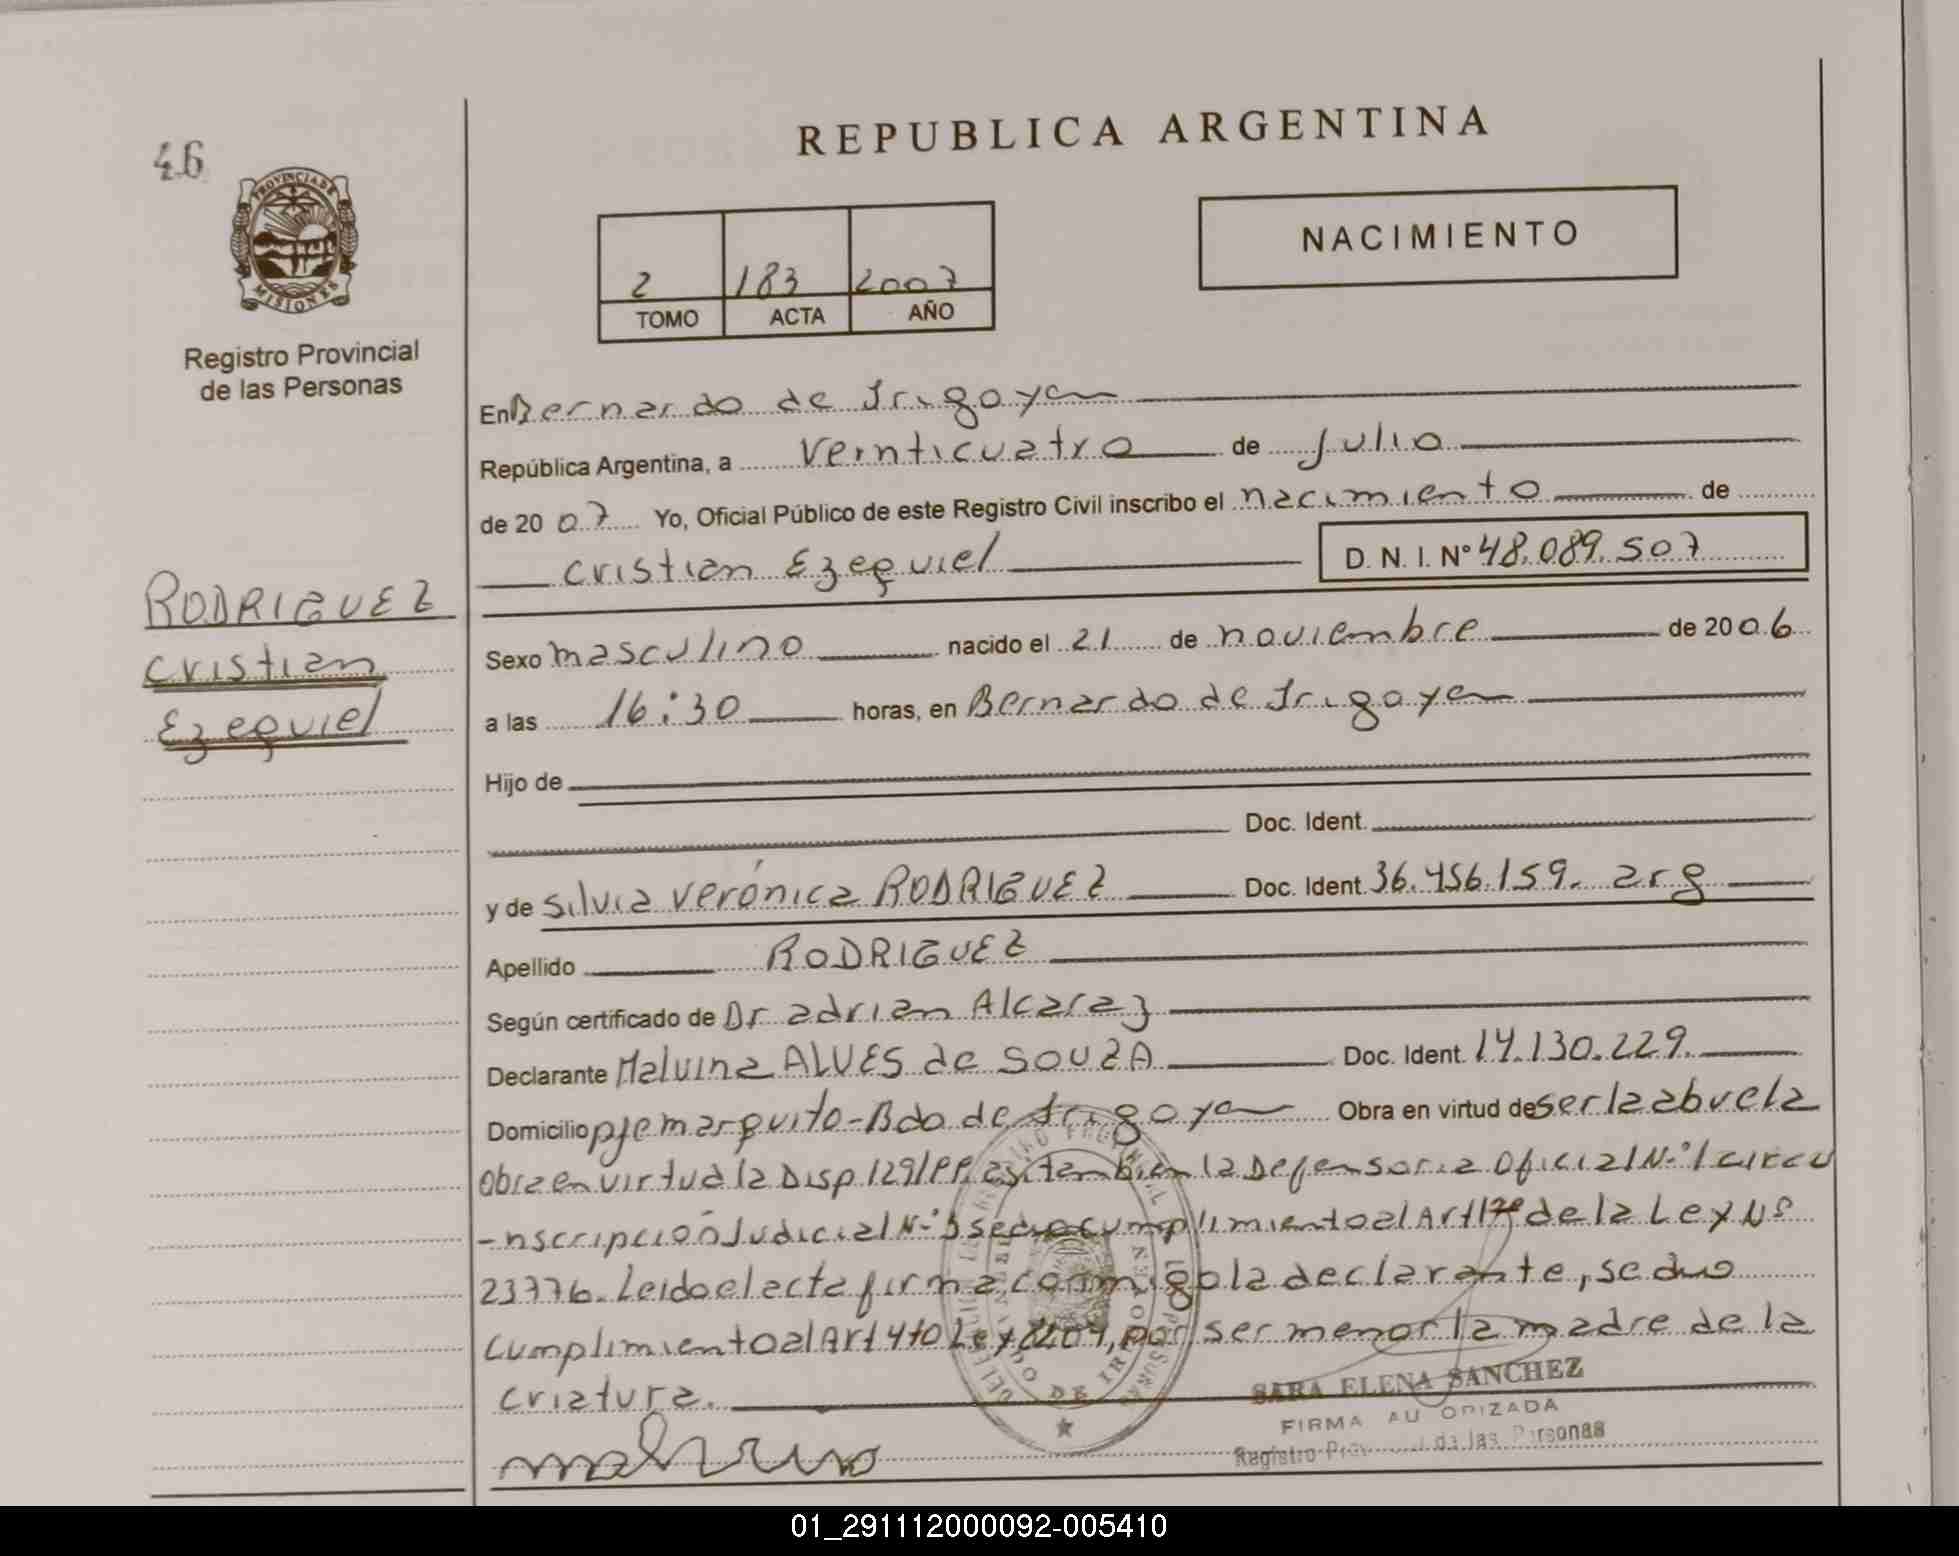 REPUBLICA ARGENTINA
46
PROVINCIA DE
MISIONES
Registro Provincial
de las Personas
NACIMIENTO
2 183 2007
TOMO ACTA AÑO
En Bernardo de Irigoyen
República Argentina, a Veinticuatro de Julio
de 2007 Yo, Oficial Público de este Registro Civil inscribo el nacimiento de
Cristian Ezequiel D. N. I. N° 48.089.507
RODRIGUEZ
Cristian
Ezequiel
Sexo masculino nacido el 21 de noviembre de 2006
a las 16:30 horas, en Bernardo de Irigoyen
Hijo de
Doc. Ident.
y de Silvia Verónica RODRIGUEZ Doc. Ident. 36.456.159. arg
Apellido RODRIGUEZ
Según certificado de Dr adrian Alcaraz
Declarante Malvina ALVES de SOUZA Doc. Ident. 14.130.229.
Domicilio pje marquito-Bdo de Irigoyen Obra en virtud de ser la abuela
Obra en virtud la Disp 129/PP, asi tambien la Defensoria Oficial N-°1 circu
-nscripción Judicial N-°3 se dio cumplimiento al Art 12 de la Ley N°
23776. Leido el acta firma conmigo la declarante, se dio
cumplimiento al Art 4to Ley, por ser menor la madre de la
criatura.
SARA ELENA SANCHEZ
FIRMA AUTORIZADA
Registro Provincial de las Personas
01_291112000092-005410